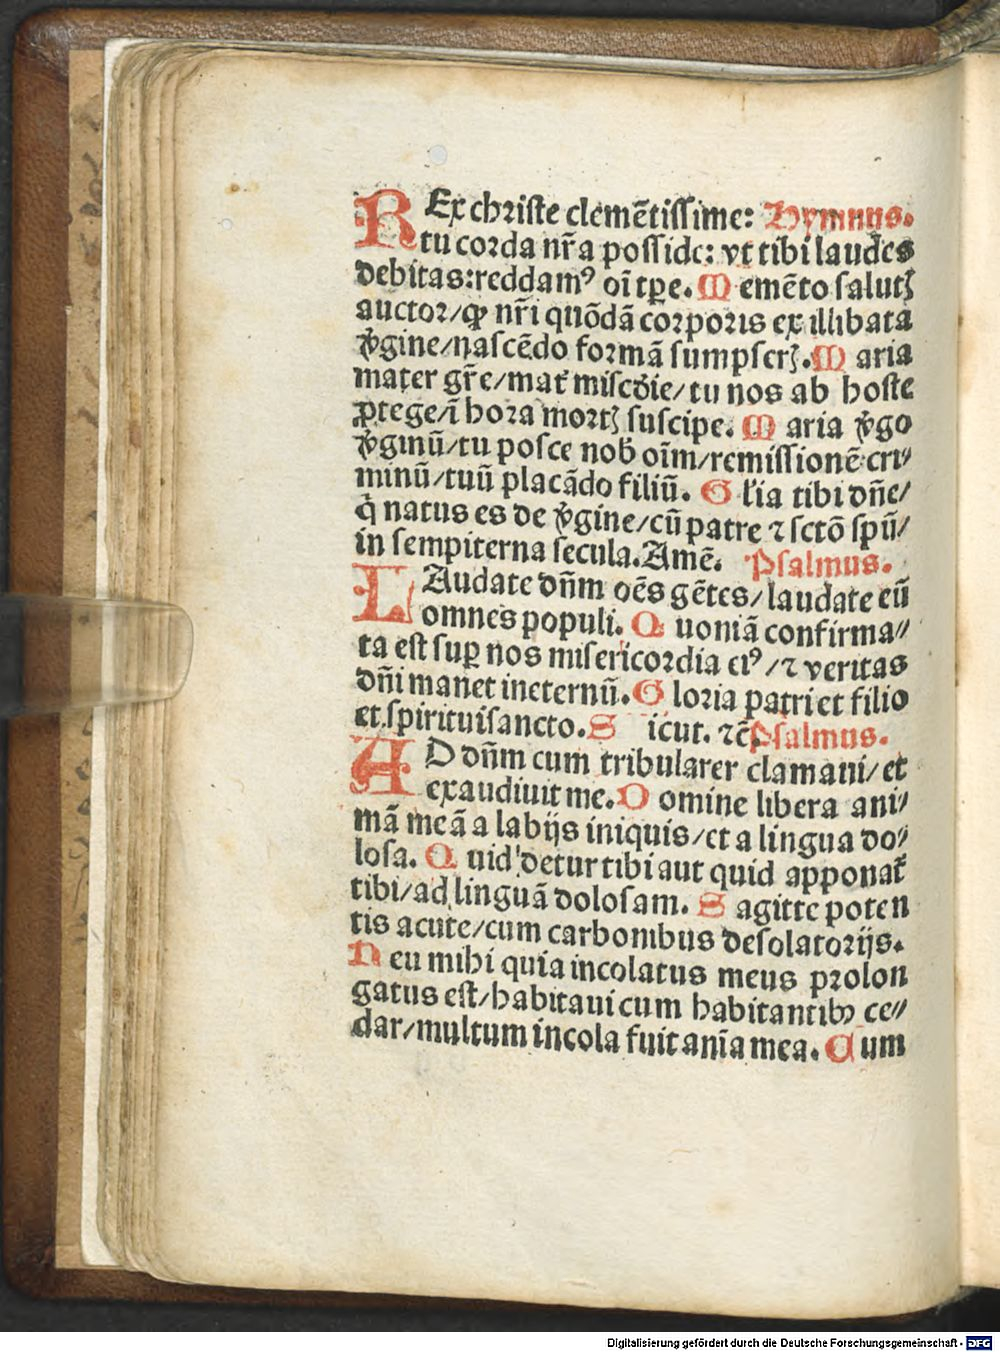 REx christe clemētissime: Hymnus.
tu corda nr̄a posside: vt tibi laudes
debitas: reddamꝰ oī tꝑe. Memēto salutꝭ
auctor/ꝙ nr̄i quōdā corporis ex illibata
ꝟgine/nascēdo formā sumpserꝭ. Maria
mater gr̄e/mat̄ miscd̄ie/tu nos ab hoste
ꝓtege/ī hora mortꝭ suscipe. Maria ꝟgo
ꝟginū/tu posce nob̄ oīm/remissionē cri⸗
minū/tuū placādo filiū. Gl'ia tibi dn̄e/
q̇ natus es de ꝟgine/cū patre ⁊ sctō spū/
in sempiterna secula. Amē. Psalmus.
LAudate dn̄m oēs gētes/laudate eū
omnes populi. Quoniā confirma⸗
ta est suꝑ nos misericordia eiꝰ/⁊ veritas
dn̄i manet ineternū. Gloria patri et filio
et spirituisancto. Sicut. ⁊c̄. Psalmus.
AD dn̄m cum tribularer clamaui/et
exaudiuit me. Domine libera ani⸗
mā meā a labijs iniquis/et a lingua do⸗
losa. Quid detur tibi aut quid apponat̄
tibi/ad linguā dolosam. Sagitte poten
tis acute/cum carbonibus desolatorijs.
Heu mihi quia incolatus meus prolon
gatus est/habitaui cum habitantibꝰ ce⸗
dar/multum incola fuit anīa mea. Cum
Digitalisierung gefördert durch die Deutsche Forschungsgemeinschaft - DFG